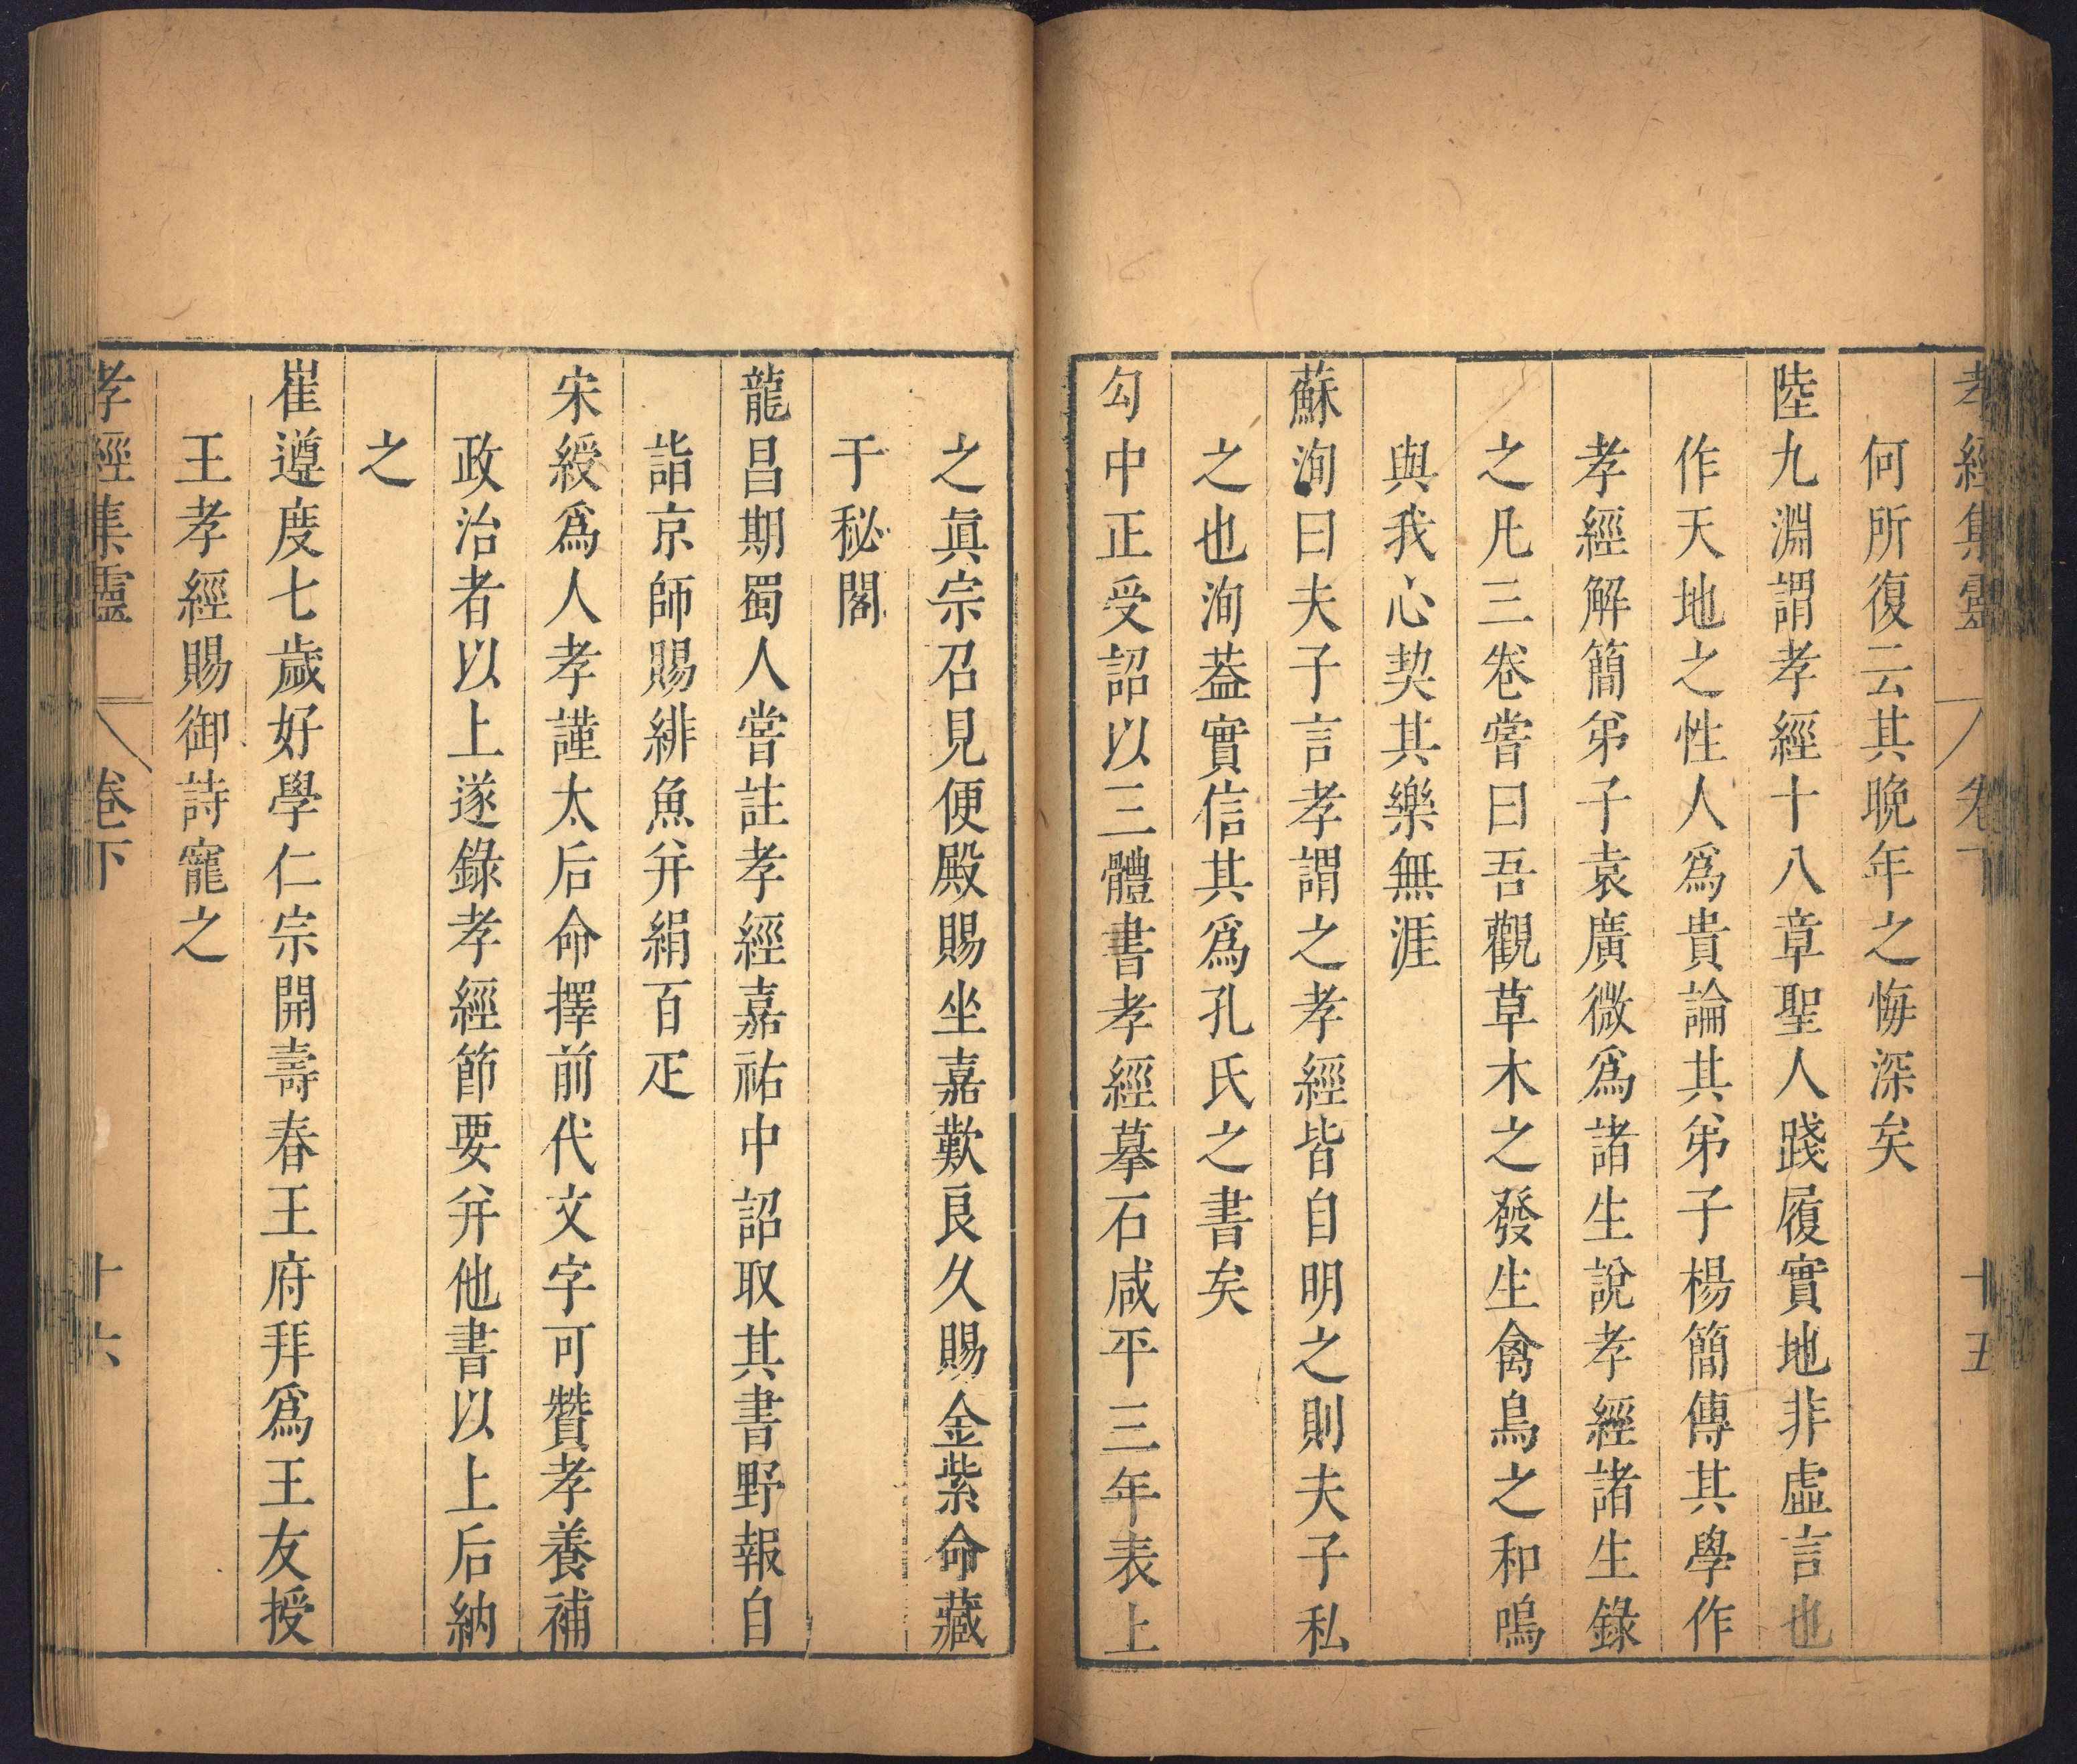 孝經集靈 卷下 十五
何所復云其晚年之悔深矣
陸九淵謂孝經十八章聖人踐履實地非虛言也
作天地之性人爲貴論其弟子楊簡傳其學作
孝經解簡弟子袁廣微爲諸生說孝經諸生錄
之凡三卷嘗曰吾觀草木之發生禽鳥之和鳴
與我心契其樂無涯
蘇洵曰夫子言孝謂之孝經皆自明之則夫子私
之也洵葢實信其爲孔氏之書矣
勾中正受詔以三體書孝經摹石咸平三年表上
之眞宗召見便殿賜坐嘉歎良久賜金紫命藏
于秘閣
龍昌期蜀人嘗註孝經嘉祐中詔取其書野報自
詣京師賜緋魚并絹百疋
宋綬爲人孝謹太后命擇前代文字可贊孝養補
政治者以上遂錄孝經節要并他書以上后納
之
崔遵度七歲好學仁宗開壽春王府拜爲王友授
王孝經賜御詩寵之
孝經集靈 卷下 十六